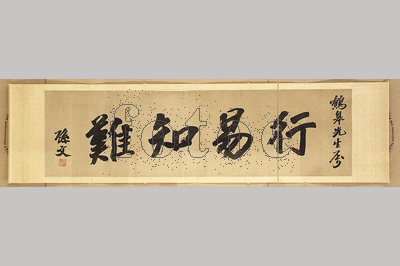 鶴皋先生屬
行易知難
孫文